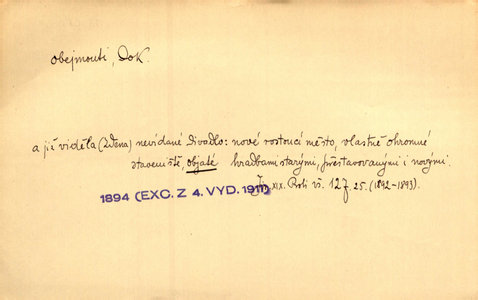 obejmouti, Dok.
a již viděla (Zdena) nevídané divadlo: nové rostoucí město, vlastně ohromné
staveniště, objaté hradbami starými, přestavovanými i novými.
Jir. XIX. Proti vš. 127. 25. (1892-1893).
1894 (EXC. Z 4. VYD. 1911)